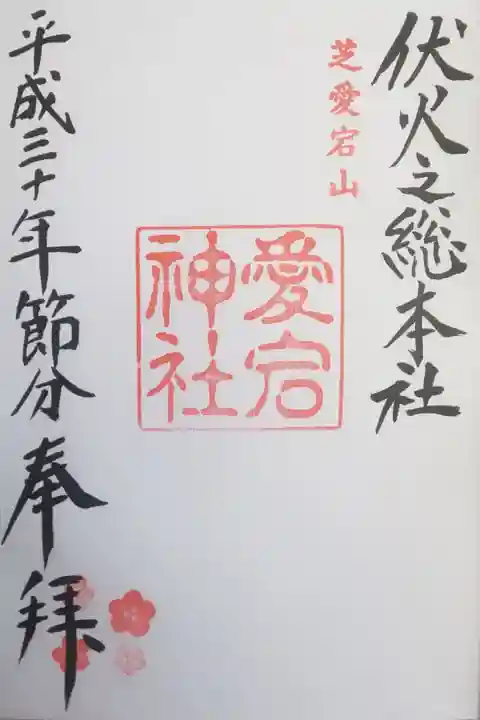 伏火之総本社
芝愛宕山
愛宕
神社
平成三十年節分
奉拝